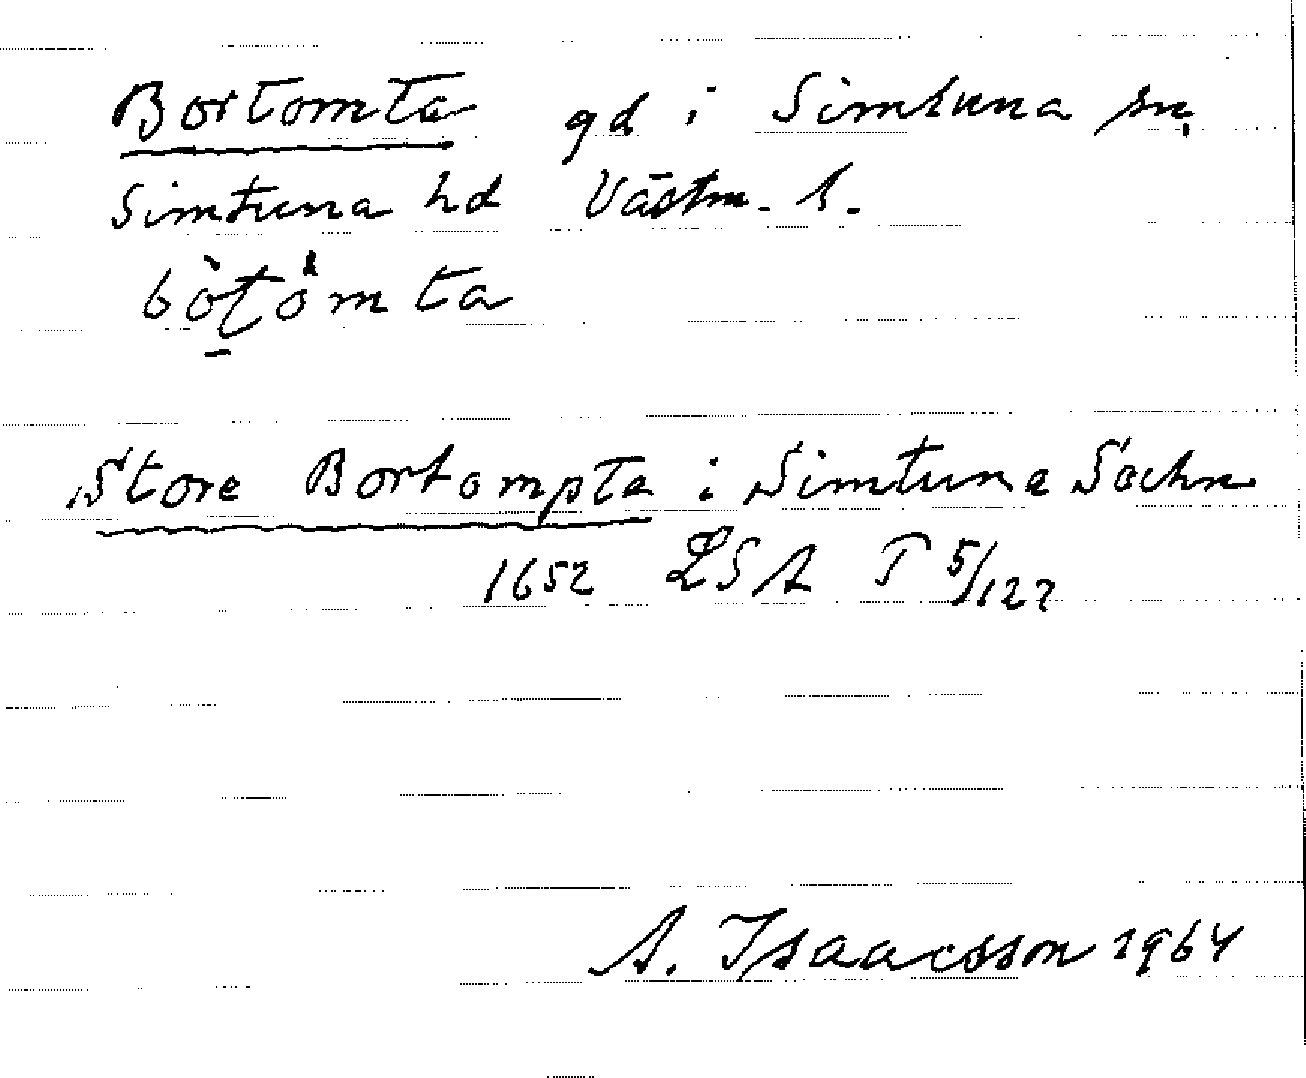 Bortomta gd i Simtuna sn,
Simtuna hd Västm. l.
bòtömta
Store Bortompta i Simtuna Sochn
1652 LSA T 5/127
A. Isaacsson 1964